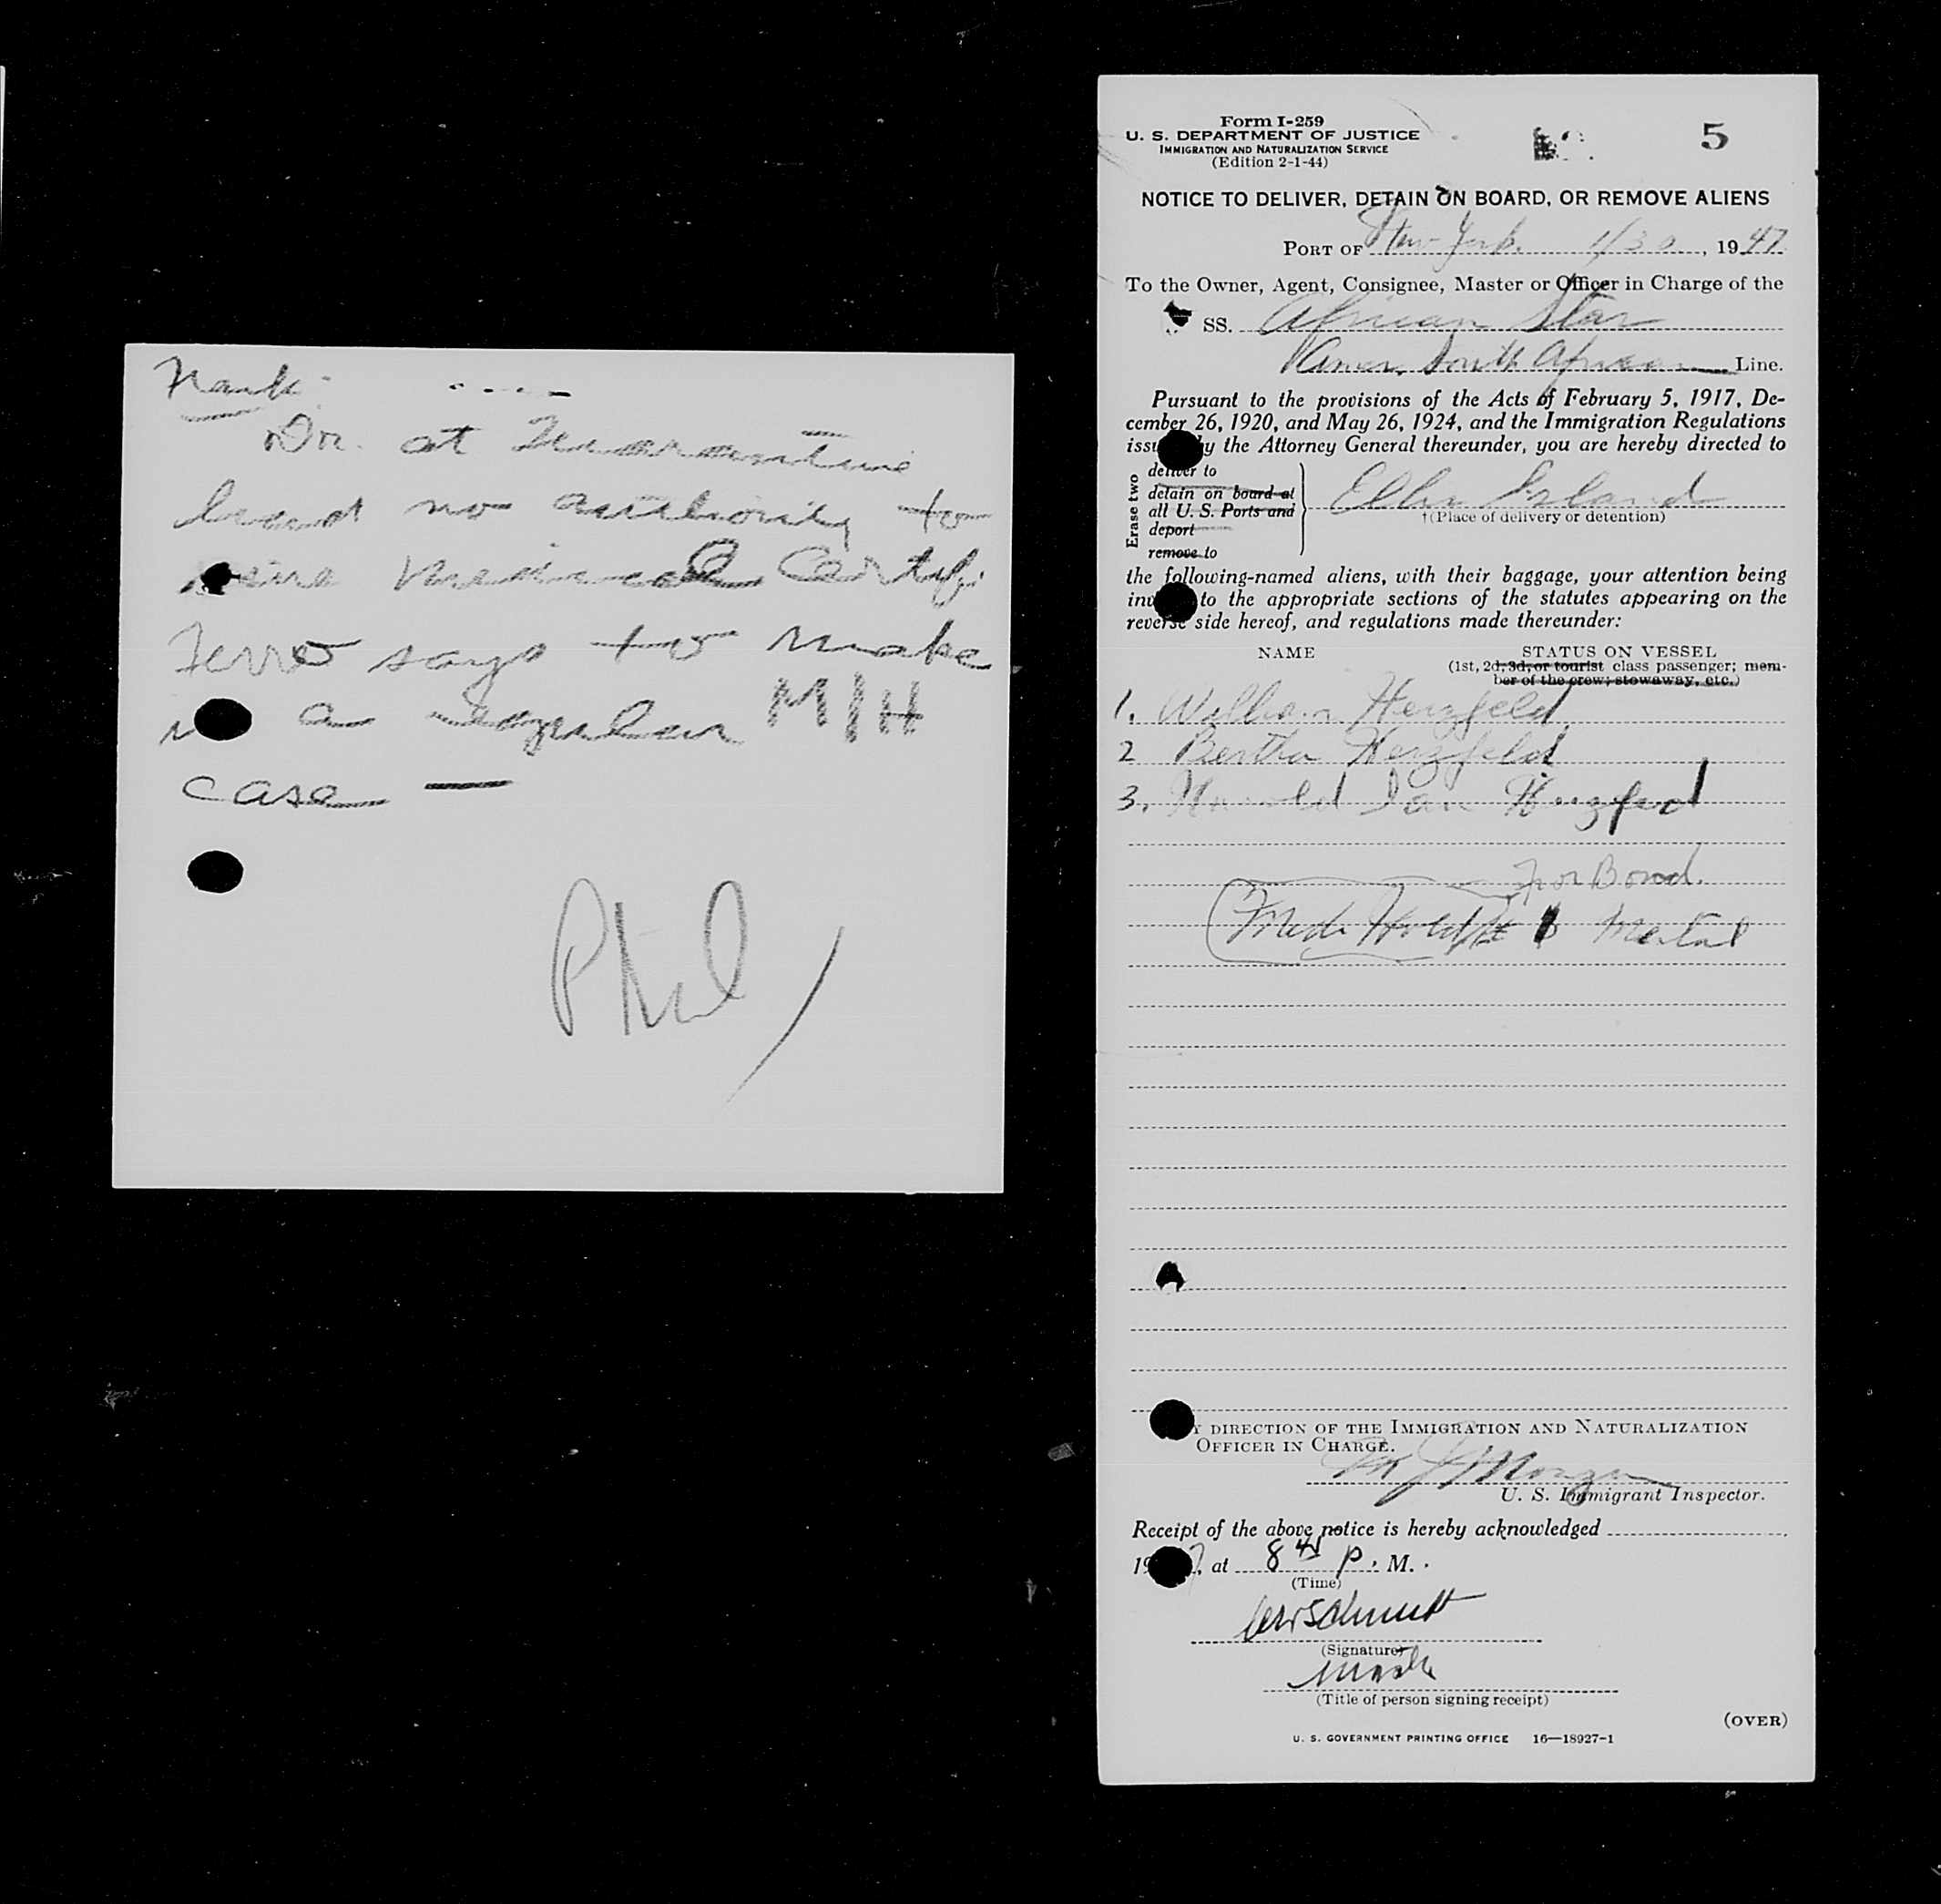 Frank:
Dr. at Quarantine
had no authority to
give medical Certif.
Ferro says to make
a regular M/H
case —
Phil
Form I-259
U. S. DEPARTMENT OF JUSTICE
IMMIGRATION AND NATURALIZATION SERVICE
(Edition 2-1-44)
5
NOTICE TO DELIVER, DETAIN ON BOARD, OR REMOVE ALIENS
PORT OF New York 1/30, 1947
To the Owner, Agent, Consignee, Master or Officer in Charge of the
SS. African Star
Amer. South African Line.
Pursuant to the provisions of the Acts of February 5, 1917, De-
cember 26, 1920, and May 26, 1924, and the Immigration Regulations
issued by the Attorney General thereunder, you are hereby directed to
Erase two
deliver to
detain on board at
all U. S. Ports and
deport
remove to
Ellis Island
†(Place of delivery or detention)
the following-named aliens, with their baggage, your attention being
invited to the appropriate sections of the statutes appearing on the
reverse side hereof, and regulations made thereunder:
NAME STATUS ON VESSEL
(1st, 2d, 3d, or tourist class passenger; mem-
ber of the crew; stowaway, etc.)
1. William Herzfeld
2 Bertha Herzfeld
3. Harold Ian Herzfeld
For Bond.
Med. Hold Mental
BY DIRECTION OF THE IMMIGRATION AND NATURALIZATION
OFFICER IN CHARGE.
U. S. Immigrant Inspector.
Receipt of the above notice is hereby acknowledged
1947, at 8 45 p. M.
(Time)
(Signature)
(Title of person signing receipt)
(OVER)
U. S. GOVERNMENT PRINTING OFFICE 16—18927-1